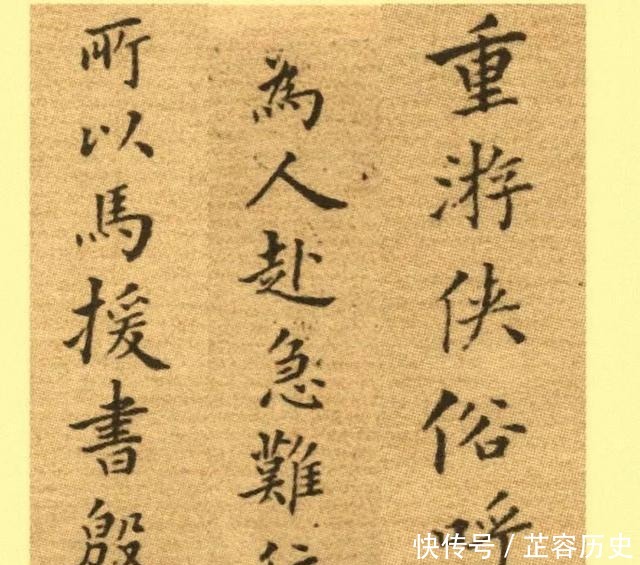 重游侠俗呼
為人赴急難行
所以馬援書殷
快传号 / 芷容历史